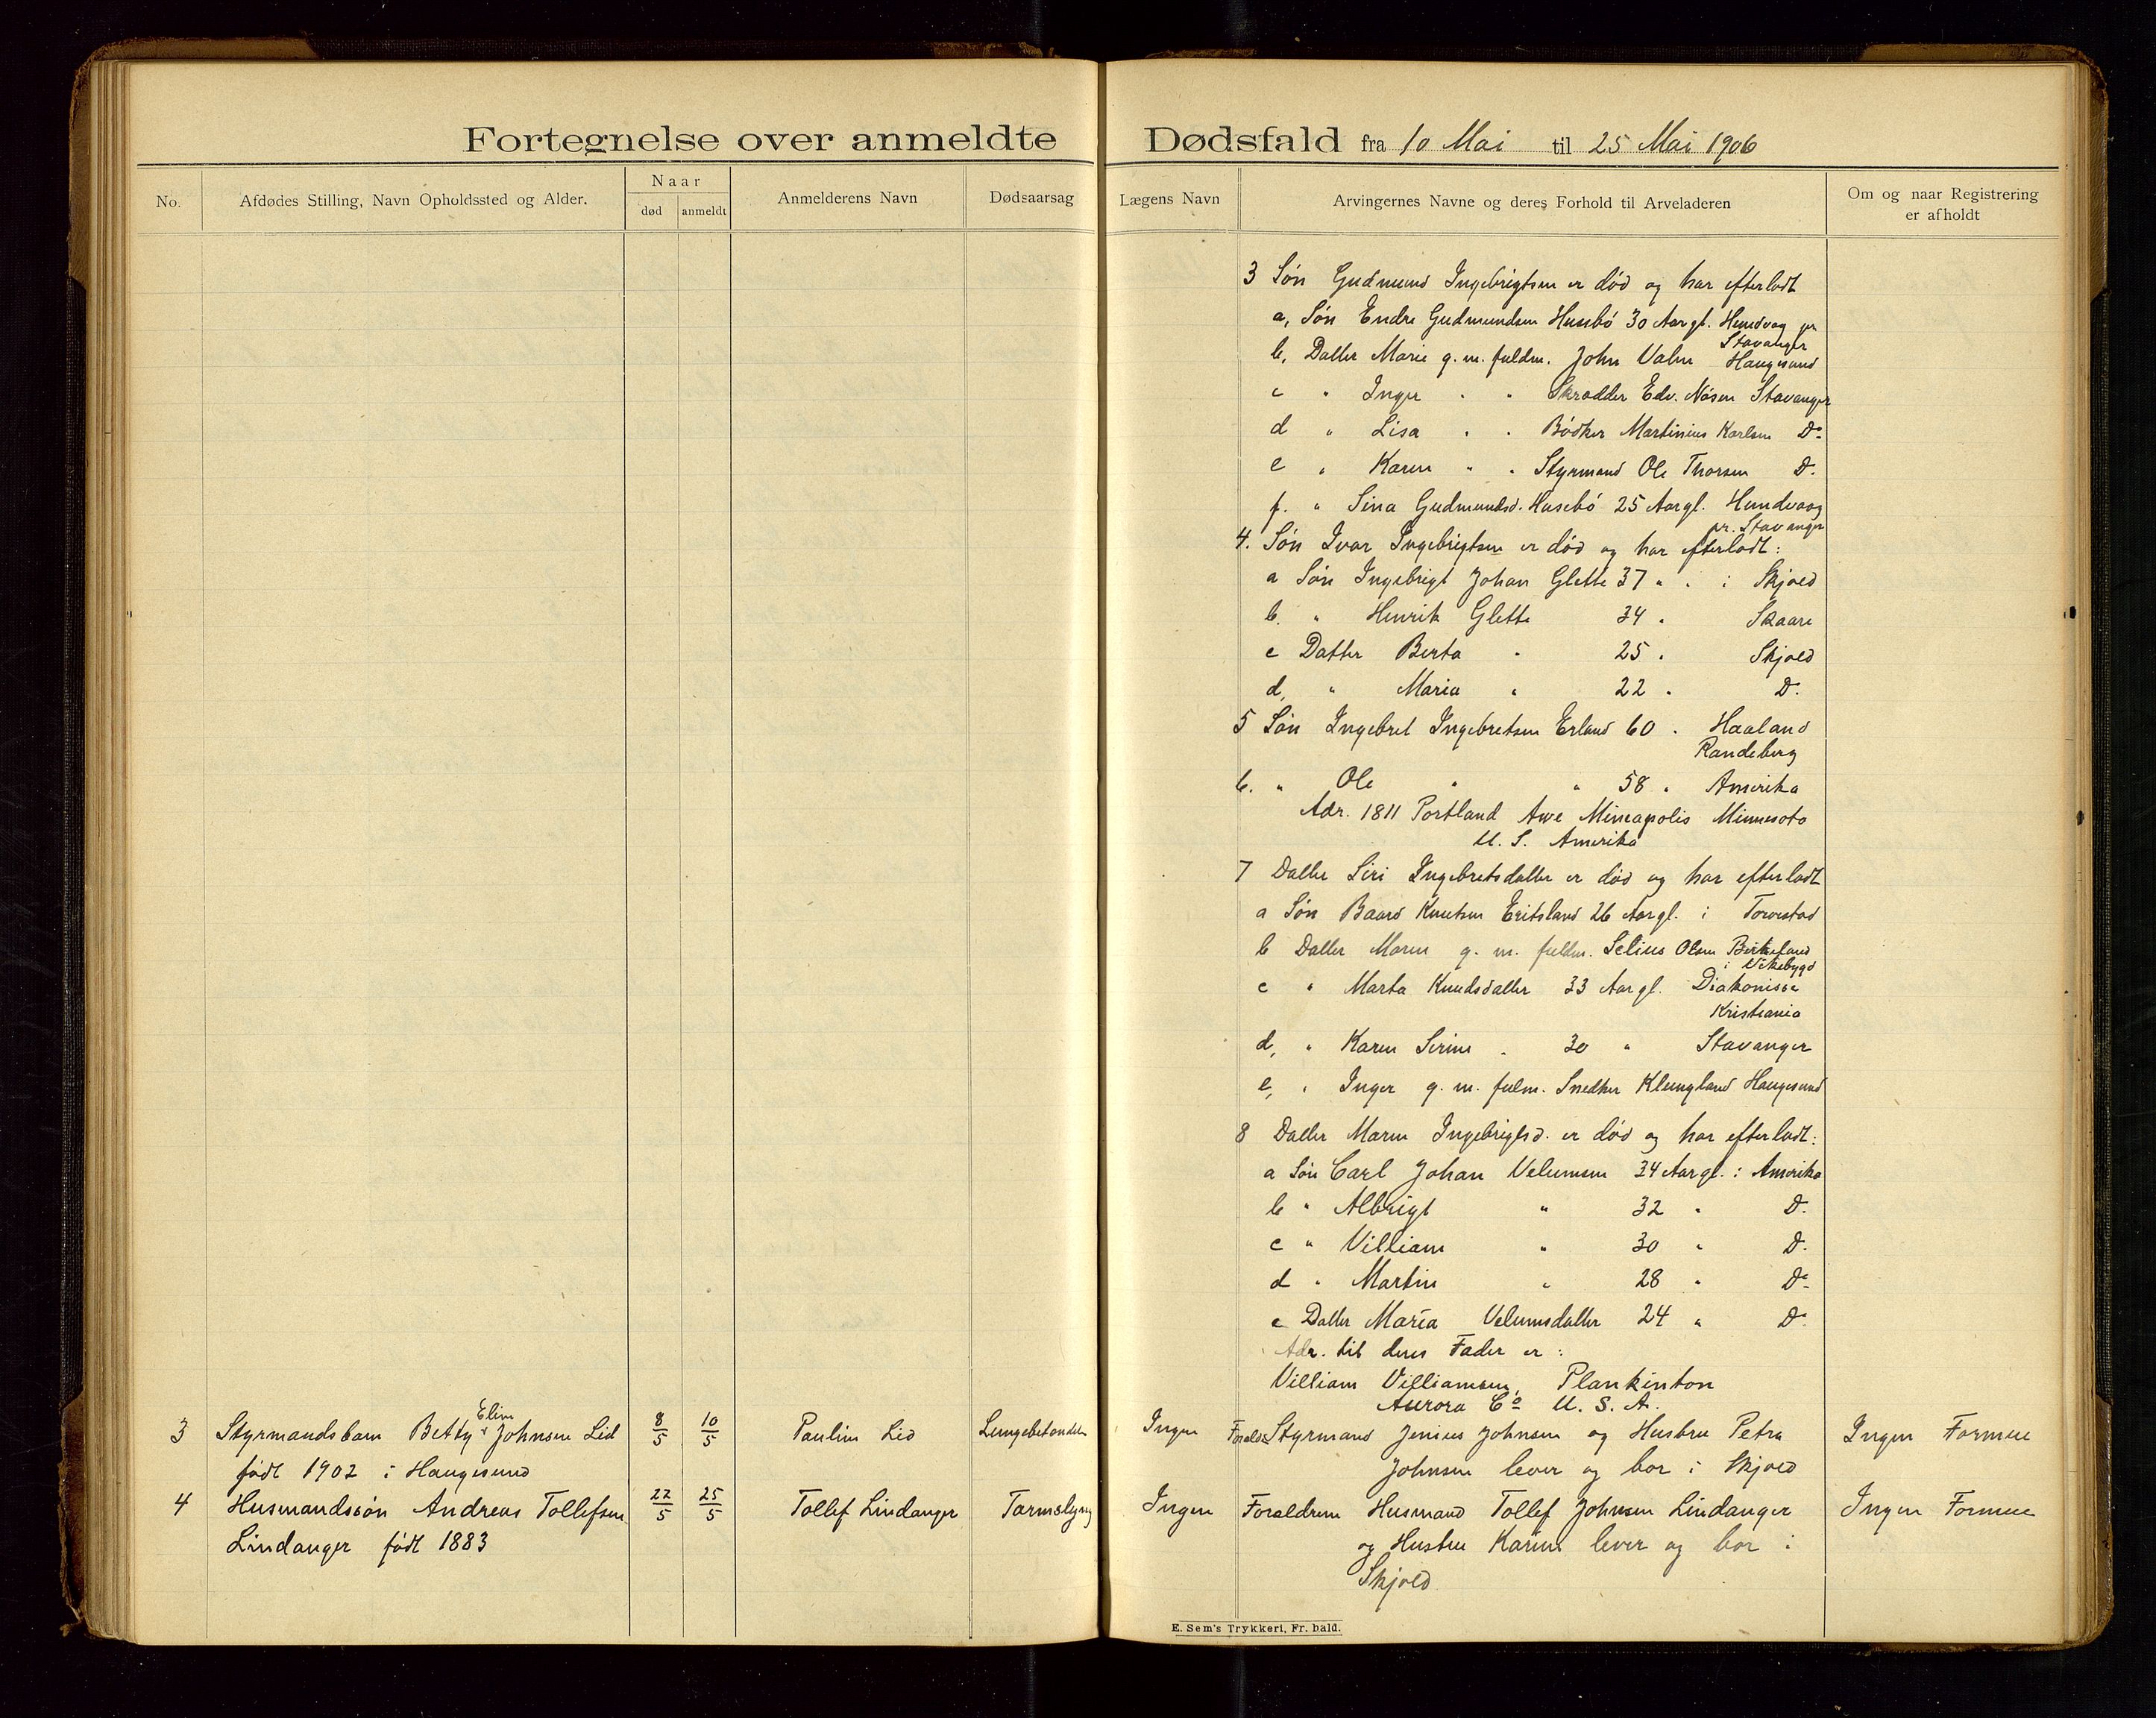 Fortegnelse over anmeldte Dødsfald fra 10 Mai til 25 Mai 1906
No.
Afdødes Stilling, Navn Opholdssted og Alder.
Naar
død
anmeldt
Anmelderens Navn
Dødsaarsag
Lægens Navn
Arvingernes Navne og deres Forhold til Arveladeren
Om og naar Registrering
er afholdt
3 Søn Gudmund Ingebrigtsen er død og har efterladt
a, Søn Endre Gudmundsen Husebø 30 Aar gl. Hundvaag pr
Stavanger
b, Datter Marie g. m. fuldm. John Valen Haugesund
c " Inger " " Skrædder Edv. Nåsen Stavanger
d " Lisa " " Bødker Martinius Karlsen Do
e " Karen " " Styrmand Ole Thorsen D.
f. " Sina Gudmundsd. Husebø 25 Aar gl. Hundvaag
pr. Stavanger
4. Søn Ivar Ingebrigtsen er død og har efterladt:
a Søn Ingebrigt Johan Glette 37 " " i Skjold
b. " Henrik Glette 34 " Skaare
c Datter Berta " 25 " Skjold
d, " Maria " 22 " D.
5 Søn Ingebret Ingebretsen Erland 60 " Haaland
Randeberg
6. " Ole " " 58 " Amerika
Adr. 1811 Portland Awe Mineapolis Minnesoto
U. S. Amerika
7 Datter Siri Ingebretsdatter er død og har efterladt
a Søn Baard Knutsen Eritsland 26 Aar gl. i Torvestad
b Datter Maren g. m. fuldm. Selius Olsen Birkeland
i Vikebygd
c " Marta Knudsdatter 33 Aar gl. Diakonisse
Kristiania
d, " Karen Serine " 30 " Stavanger
e, " Inger g. m. fulm. Snedker Klungland Haugesund
8 Datter Maren Ingebrigtsd. er død og har efterladt:
a Søn Carl Johan Velumsen 34 Aar gl. i Amerika
b " Albrigt " 32 " D.
c " Villiam " 30 " D.
d " Martin " 28 " Do
e Datter Maria Velumsdatter 24 " Do
Adr. til deres Fader er:
Villiam Villiamsen, Plankinton
Aurora Co U. S. A.
3 Styrmandsbarn Betty Elin Johnsen Lid 8/5 10/5 Pauline Lid Lungebetændelse Ingen Foræld. Styrmand Jenius Johnsen og Hustru Petra Ingen Formue
født 1902 i Haugesund Johnsen lever og bor i Skjold
4 Husmandssøn Andreas Tollefsen 22/5 25/5 Tollef Lindanger Tarmslyng Ingen Forældrene Husmand Tollef Johnsen Lindanger Ingen Formue
Lindanger født 1883 og Hustru Karine lever og bor i
Skjold
E. Sem's Trykkeri, Fr. hald.